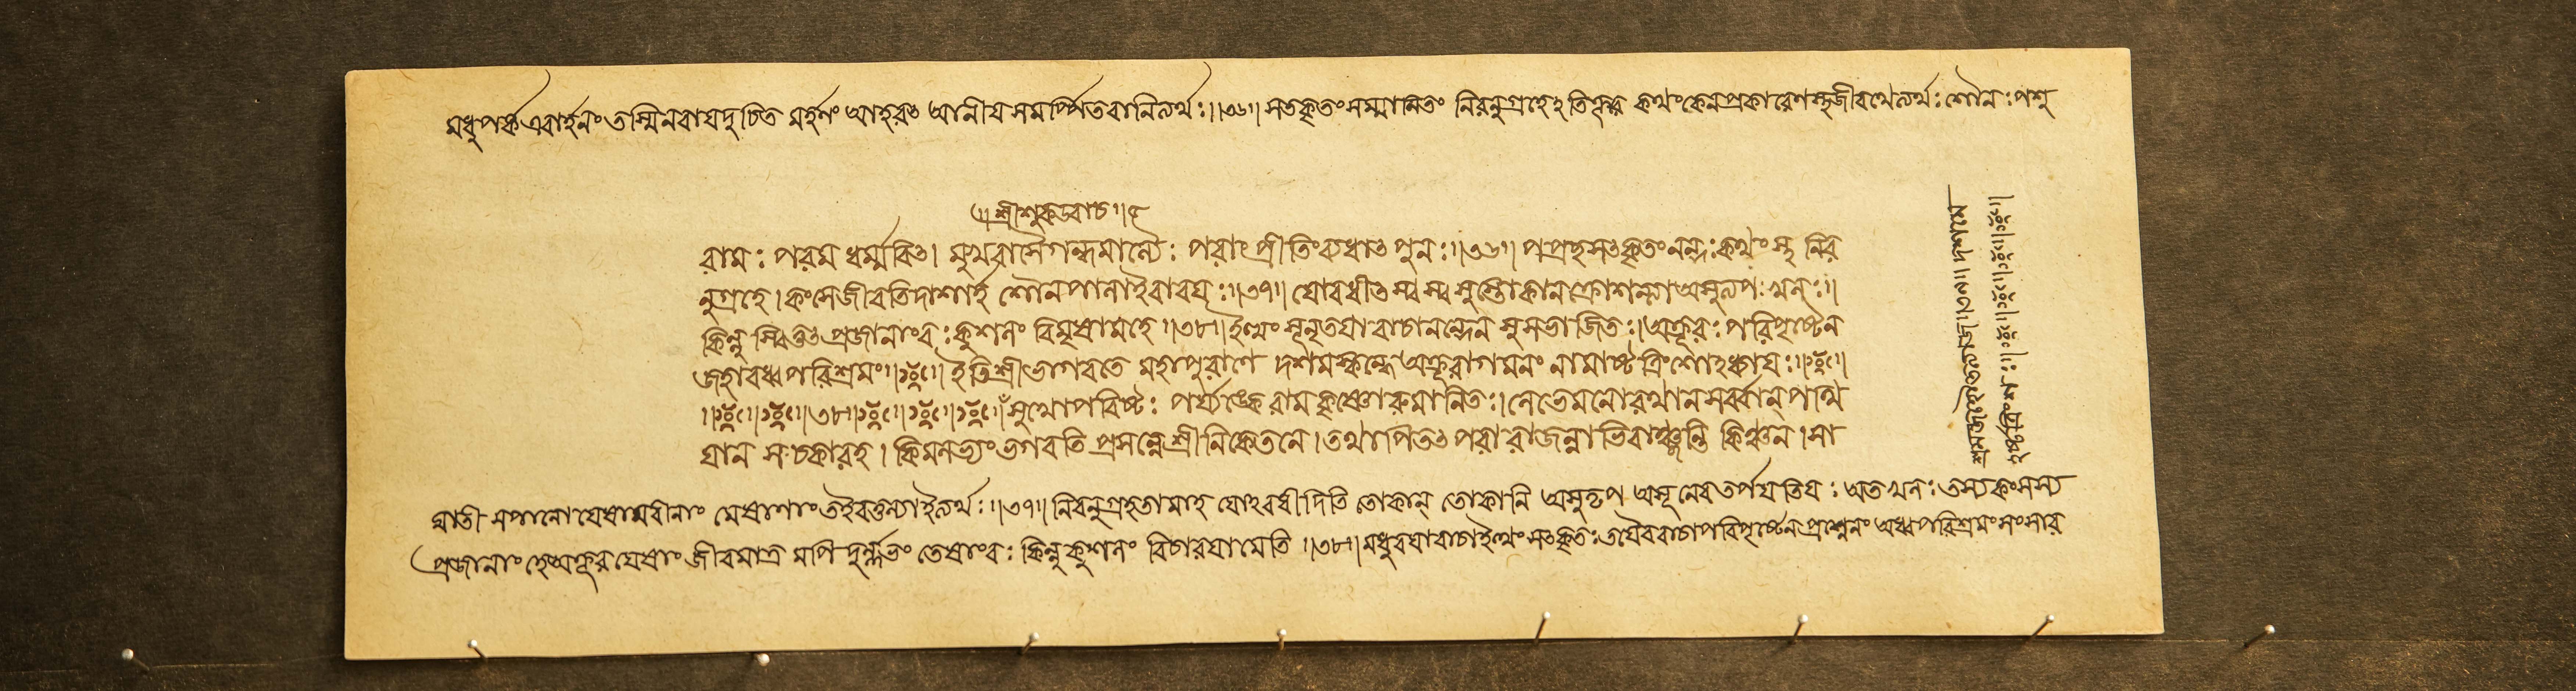 মধুপর্ক্ক এবার্হনং তস্মিনবাযদুচিত মর্হনং আহরৎ আনীয সমর্প্পিতবানিত্যর্থঃ।।৩৬।। সতকৃতং সম্মানিতং নিরনুগ্রহেঽতিক্রূরে কথং কেন প্রকারেণ স্থজীবথেত্যর্থঃ শৌনঃ পশু
।। শ্রীশুকউবাচ।।
রামঃ পরম ধর্ম্মবিৎ। মুখবাসৈর্গন্ধমাল্যৈঃ পরাং প্রীতিংব্যধাৎ পুনঃ।।৩৬।। পপ্রছসৎকৃতংনন্দ্রঃকথংস্থ নির
নুগ্রহে। কংসেজীবতিদাশার্হ শৌনপালাইবাবযঃ।।৩৭।। যোবধীৎ স্ব স্ব সুস্তোকানক্রোশন্ত্যাঅসুতৃপঃখলঃ।।
কিন্নু স্বিত্তৎপ্রজানাংবঃকুশলং বিমৃষামহে।।৩৮।। ইত্থং সূনৃতযাবাচানন্দ্রেন সুসভাজিতঃ। অক্রূরঃ পরিপৃষ্টেন
জহাবধ্বপরিশ্রমং।। ইতিশ্রীভাগবতে মহাপুরাণে দশমস্কন্ধে অক্রূরাগমনং নামাষ্ট ত্রিংশোঽধ্যাযঃ।।
।।৩৮।। সুখোপবিষ্টঃ পর্য্যঙ্কে রামকৃষ্ণোরুমানিতঃ। লেভেমনোরথানসর্ব্বান্ পথি
যান সংচকারহ। কিমলভ্যংভগবতি প্রসন্নেশ্রীনিকেতনে। তথাপিতৎপরারাজন্নাভিবাঞ্ছন্তি কিঞ্চন। সা
ঘাতী সপালোযেষামবীনাং মেষাণাং তইবত্তুল্যাইত্যর্থঃ।।৩৭।। নিরনুগ্রহতামাহ যোঽবধীদিতি তোকান্ তোকানি অসুতৃপ অসূনেবতর্পযতিযঃ অতখলঃ তস্যকংসস্য
প্রজানাং হেঅক্রূরযেষাং জীবমাত্র মপি দুর্ল্লভং তেষাংবঃ কিন্নুকুশলং বিচারযামেতি।।৩৮।। মধুরযাবাচাইত্থং সৎকৃতঃ তযৈববাচাপরিপৃষ্টেনপ্রশ্নেনং অধ্বপরিশ্রমং সংসার